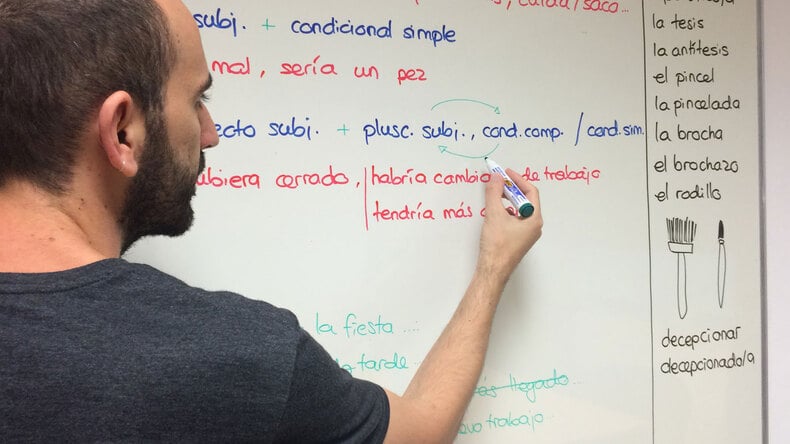 cuida/saco...
subj. + condicional simple
mal, sería un pez
ecto subj. + plusc. subj., cond.comp. / cond.sim.
ubiera cerrado, habría cambio de trabajo
tendría más
la fiesta ....
tarde ...
llegado...
trabajo...
la tesis
la antítesis
el pincel
la pincelada
la brocha
el brochazo
el rodillo
decepcionar
decepcionado/a